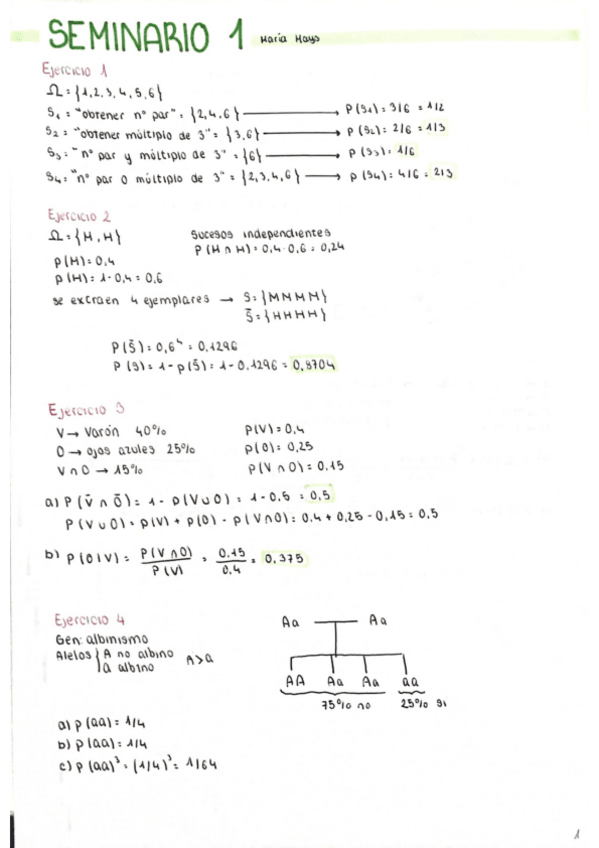 SEMINARIO 1 María Mayo
Ejercicio 1
Ω = {1,2,3,4,5,6}
S₁ = "obtener nº par" = {2,4,6} → P(S₁) = 3/6 = 1/2
S₂ = "obtener múltiplo de 3" = {3,6} → P(S₂) = 2/6 = 1/3
S₃ = "nº par y múltiplo de 3" = {6} → P(S₃) = 1/6
S₄ = "nº par o múltiplo de 3" = {2,3,4,6} → P(S₄) = 4/6 = 2/3
Ejercicio 2
Ω = {M,H} Sucesos independientes
P(M) = 0,4 P(M ∩ H) = 0,4 · 0,6 = 0,24
P(H) = 1 - 0,4 = 0,6
se extraen 4 ejemplares → S = {MMMM}
S̄ = {HHHH}
P(S̄) = 0,6⁴ = 0,1296
P(S) = 1 - P(S̄) = 1 - 0,1296 = 0,8704
Ejercicio 3
V → Varón 40% P(V) = 0,4
O → ojos azules 25% P(O) = 0,25
V ∩ O → 15% P(V ∩ O) = 0,15
a) P(V̄ ∩ Ō) = 1 - P(V ∪ O) = 1 - 0,5 = 0,5
P(V ∪ O) = P(V) + P(O) - P(V ∩ O) = 0,4 + 0,25 - 0,15 = 0,5
b) P(O|V) = P(V ∩ O) / P(V) = 0,15 / 0,4 = 0,375
Ejercicio 4
Gen: albinismo
Alelos { A no albino
a albino
A > a
Aa Aa
AA Aa Aa aa
75% no 25% si
a) P(aa) = 1/4
b) P(aa) = 1/4
c) P(aa)³ = (1/4)³ = 1/64
1